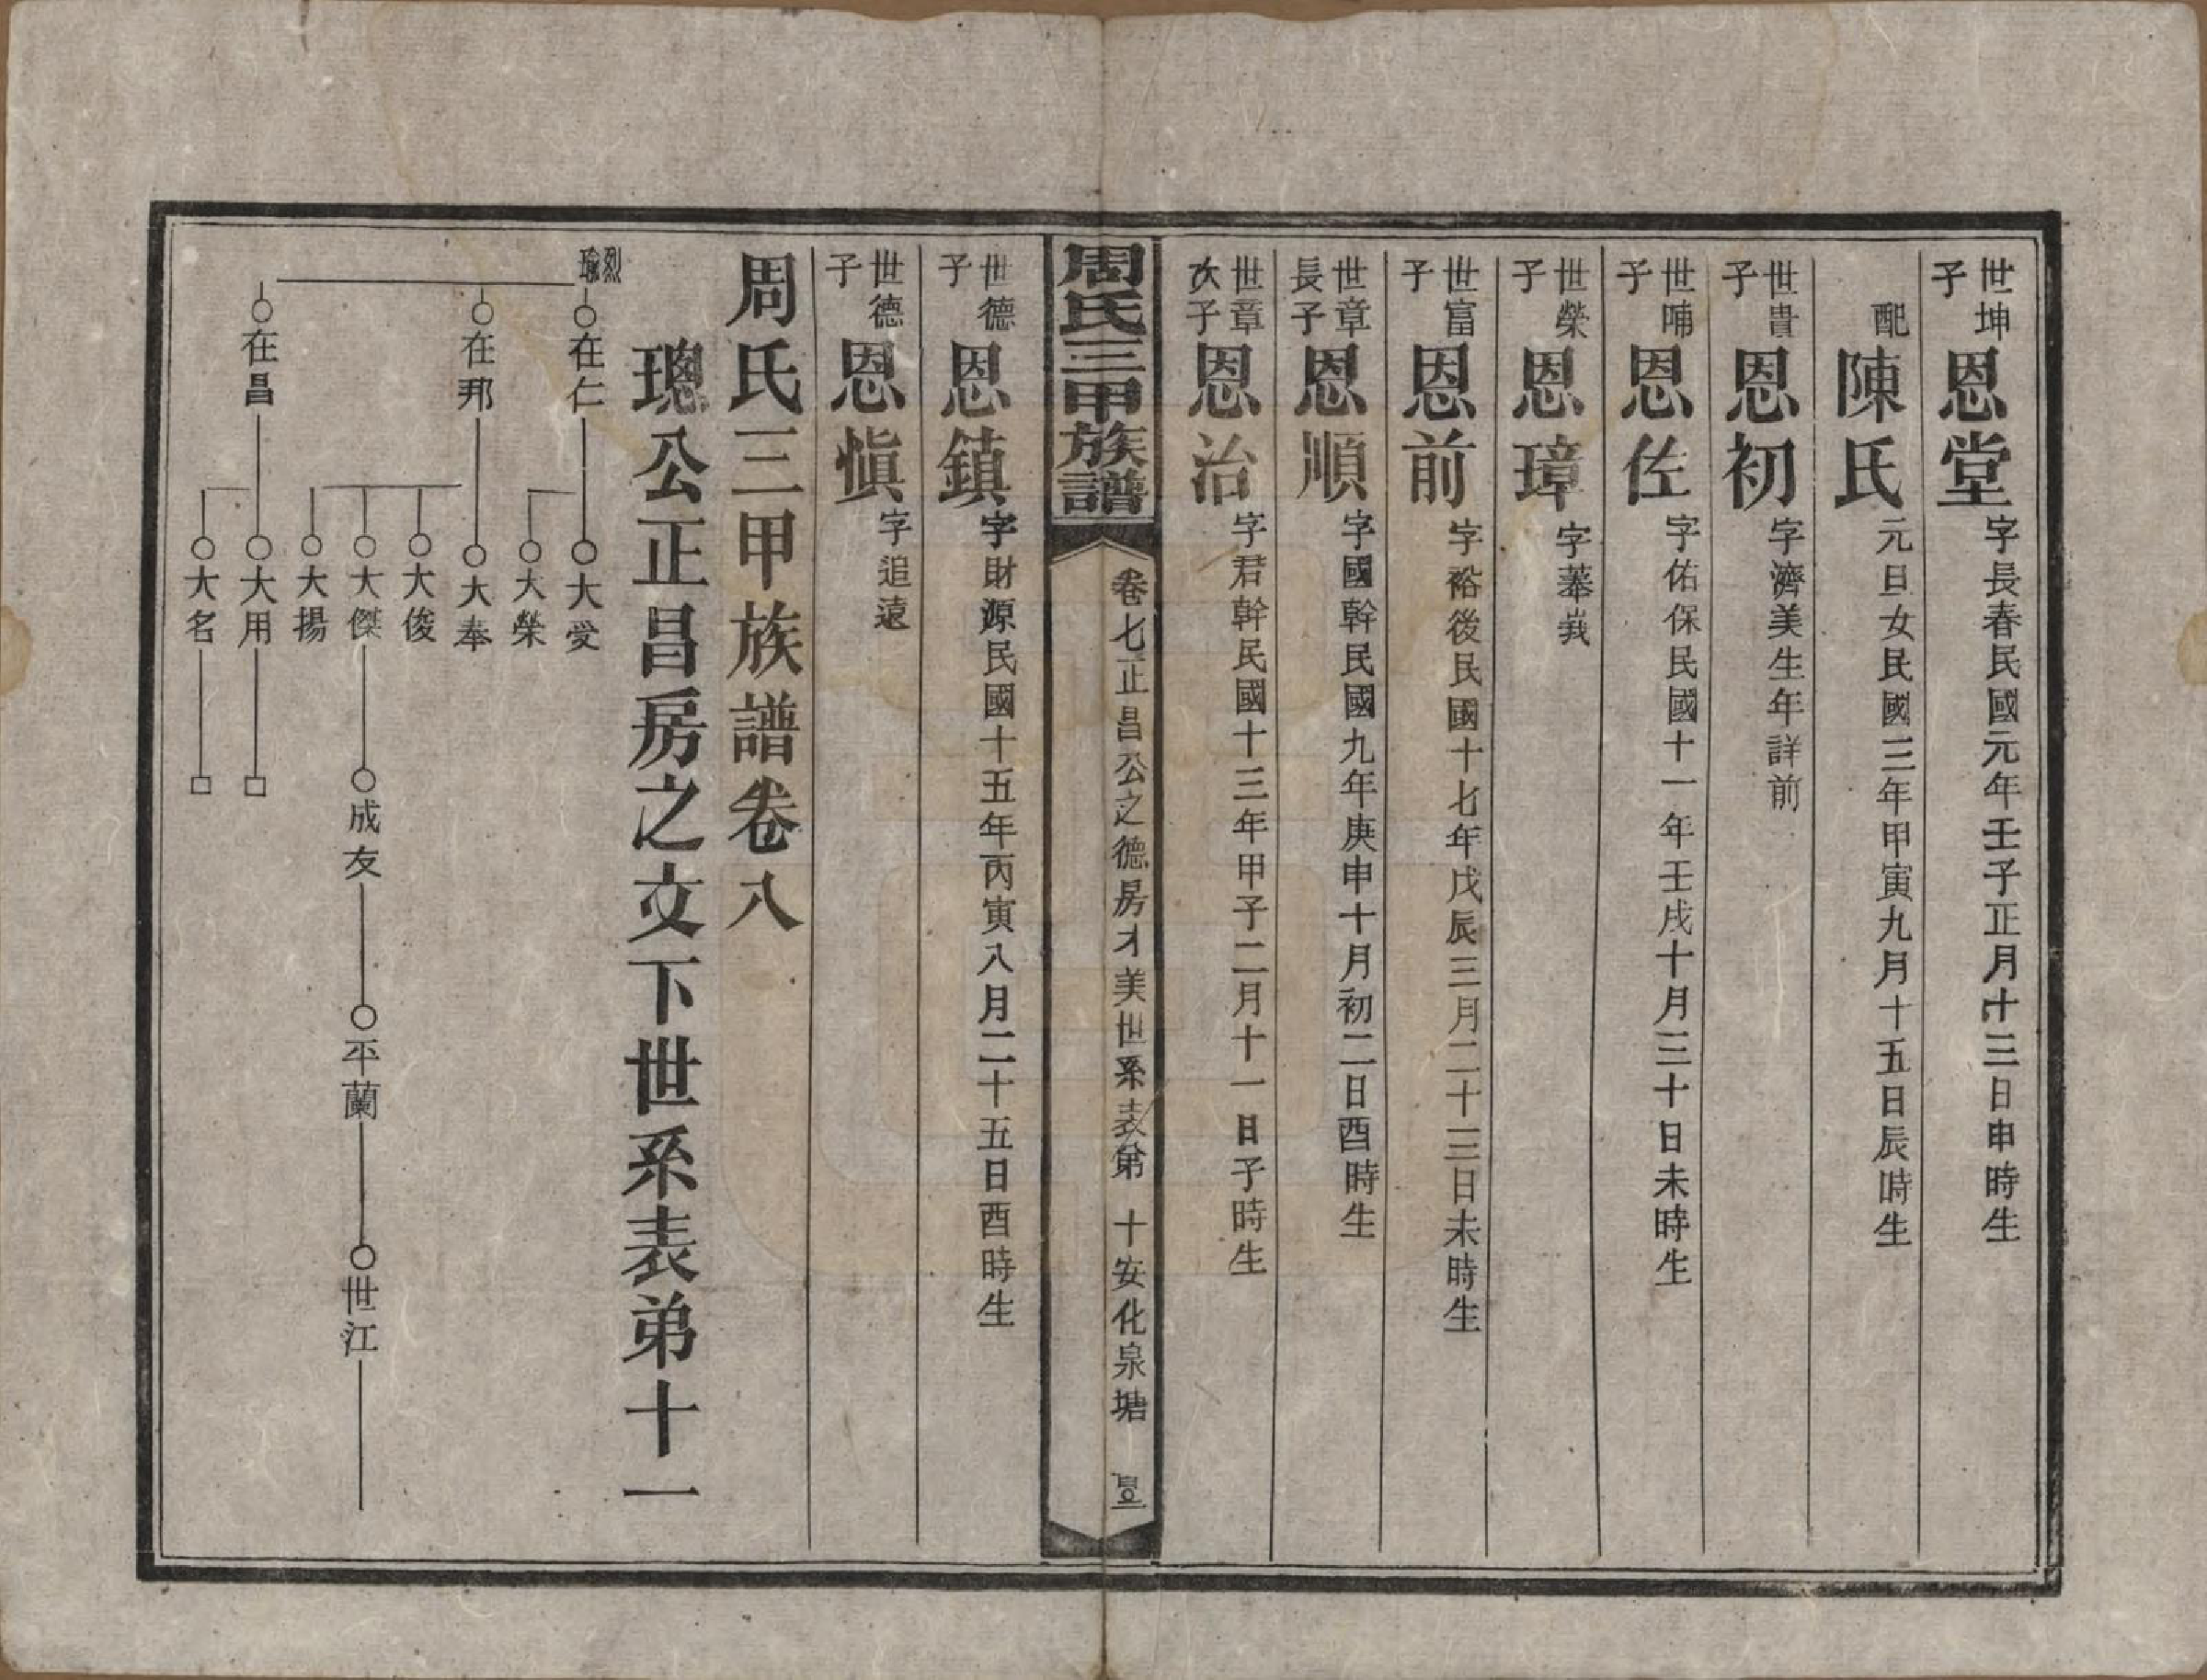 世坤子 恩堂 字長春民國元年壬子正月十三日申時生
配 陳氏 元旦女民國三年甲寅九月十五日辰時生
世貴子 恩初 字濟美生年詳前
世哺子 恩佐 字佑保民國十一年壬戌十月三十日未時生
世榮子 恩璋 字莪
世富子 恩前 字裕後民國十七年戊辰三月二十三日未時生
世章長子 恩順 字國幹民國九年庚申十月初二日酉時生
世章次子 恩治 字君幹民國十三年甲子二月十一日子時生
周氏三甲族譜
卷七正昌公之德房才美世系表第 十安化泉塘
世德子 恩鎮 字財源民國十五年丙寅八月二十五日酉時生
世德子 恩慎 字追遠
周氏三甲族譜卷八
璁公正昌房之文下世系表弟十一
烈瑜
○在仁 ○大愛
○大榮
○在邦 ○大奉
○大俊
○大傑 ○成友 ○平蘭 ○世江
○大揚
○在昌 ○大用 □
○大名 □